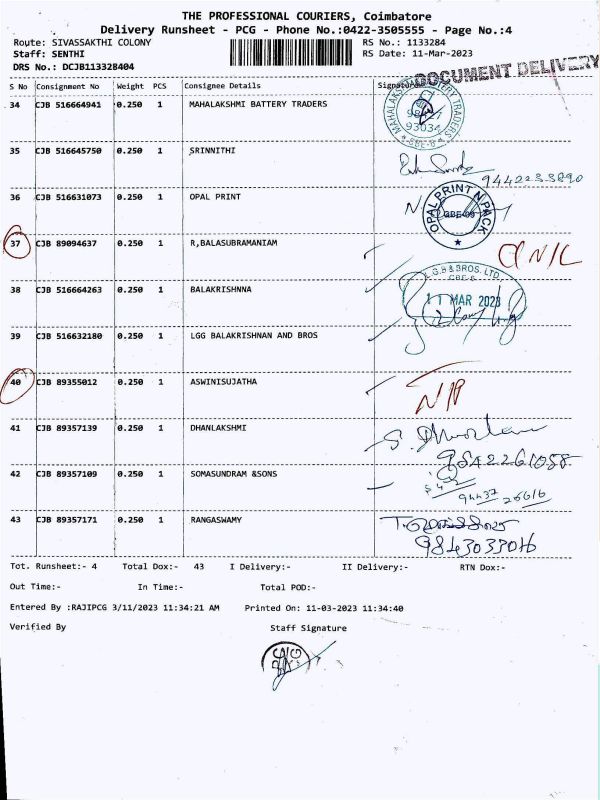 THE PROFESSIONAL COURIERS, Coimbatore
Delivery Runsheet - PCG - Phone No.:0422-3505555 - Page No.:4
Route: SIVASSAKTHI COLONY
RS No.: 1133284
Staff: SENTHI
RS Date: 11-Mar-2023
DRS No.: DCJB113328404
DOCUMENT DELIVERY
S No Consignment No Weight PCS Consignee Details Signature
34 CJB 516664941 0.250 1 MAHALAKSHMI BATTERY TRADERS
93034
CBE-6
35 CJB 516645750 0.250 1 SRINNITHI
9442233890
36 CJB 516631073 0.250 1 OPAL PRINT
OPAL PRINT N PACK
37 CJB 89094637 0.250 1 R,BALASUBRAMANIAM
L.G.B & BROS. LTD.
CBE-6
38 CJB 516664263 0.250 1 BALAKRISHNNA
11 MAR 2023
39 CJB 516632180 0.250 1 LGG BALAKRISHNAN AND BROS
40 CJB 89355012 0.250 1 ASWINISUJATHA
41 CJB 89357139 0.250 1 DHANLAKSHMI
9842261058
42 CJB 89357109 0.250 1 SOMASUNDRAM &SONS
94437 26616
43 CJB 89357171 0.250 1 RANGASWAMY
9843033016
Tot. Runsheet:- 4 Total Dox:- 43 I Delivery:- II Delivery:- RTN Dox:-
Out Time:- In Time:- Total POD:-
Entered By :RAJIPCG 3/11/2023 11:34:21 AM Printed On: 11-03-2023 11:34:40
Verified By Staff Signature